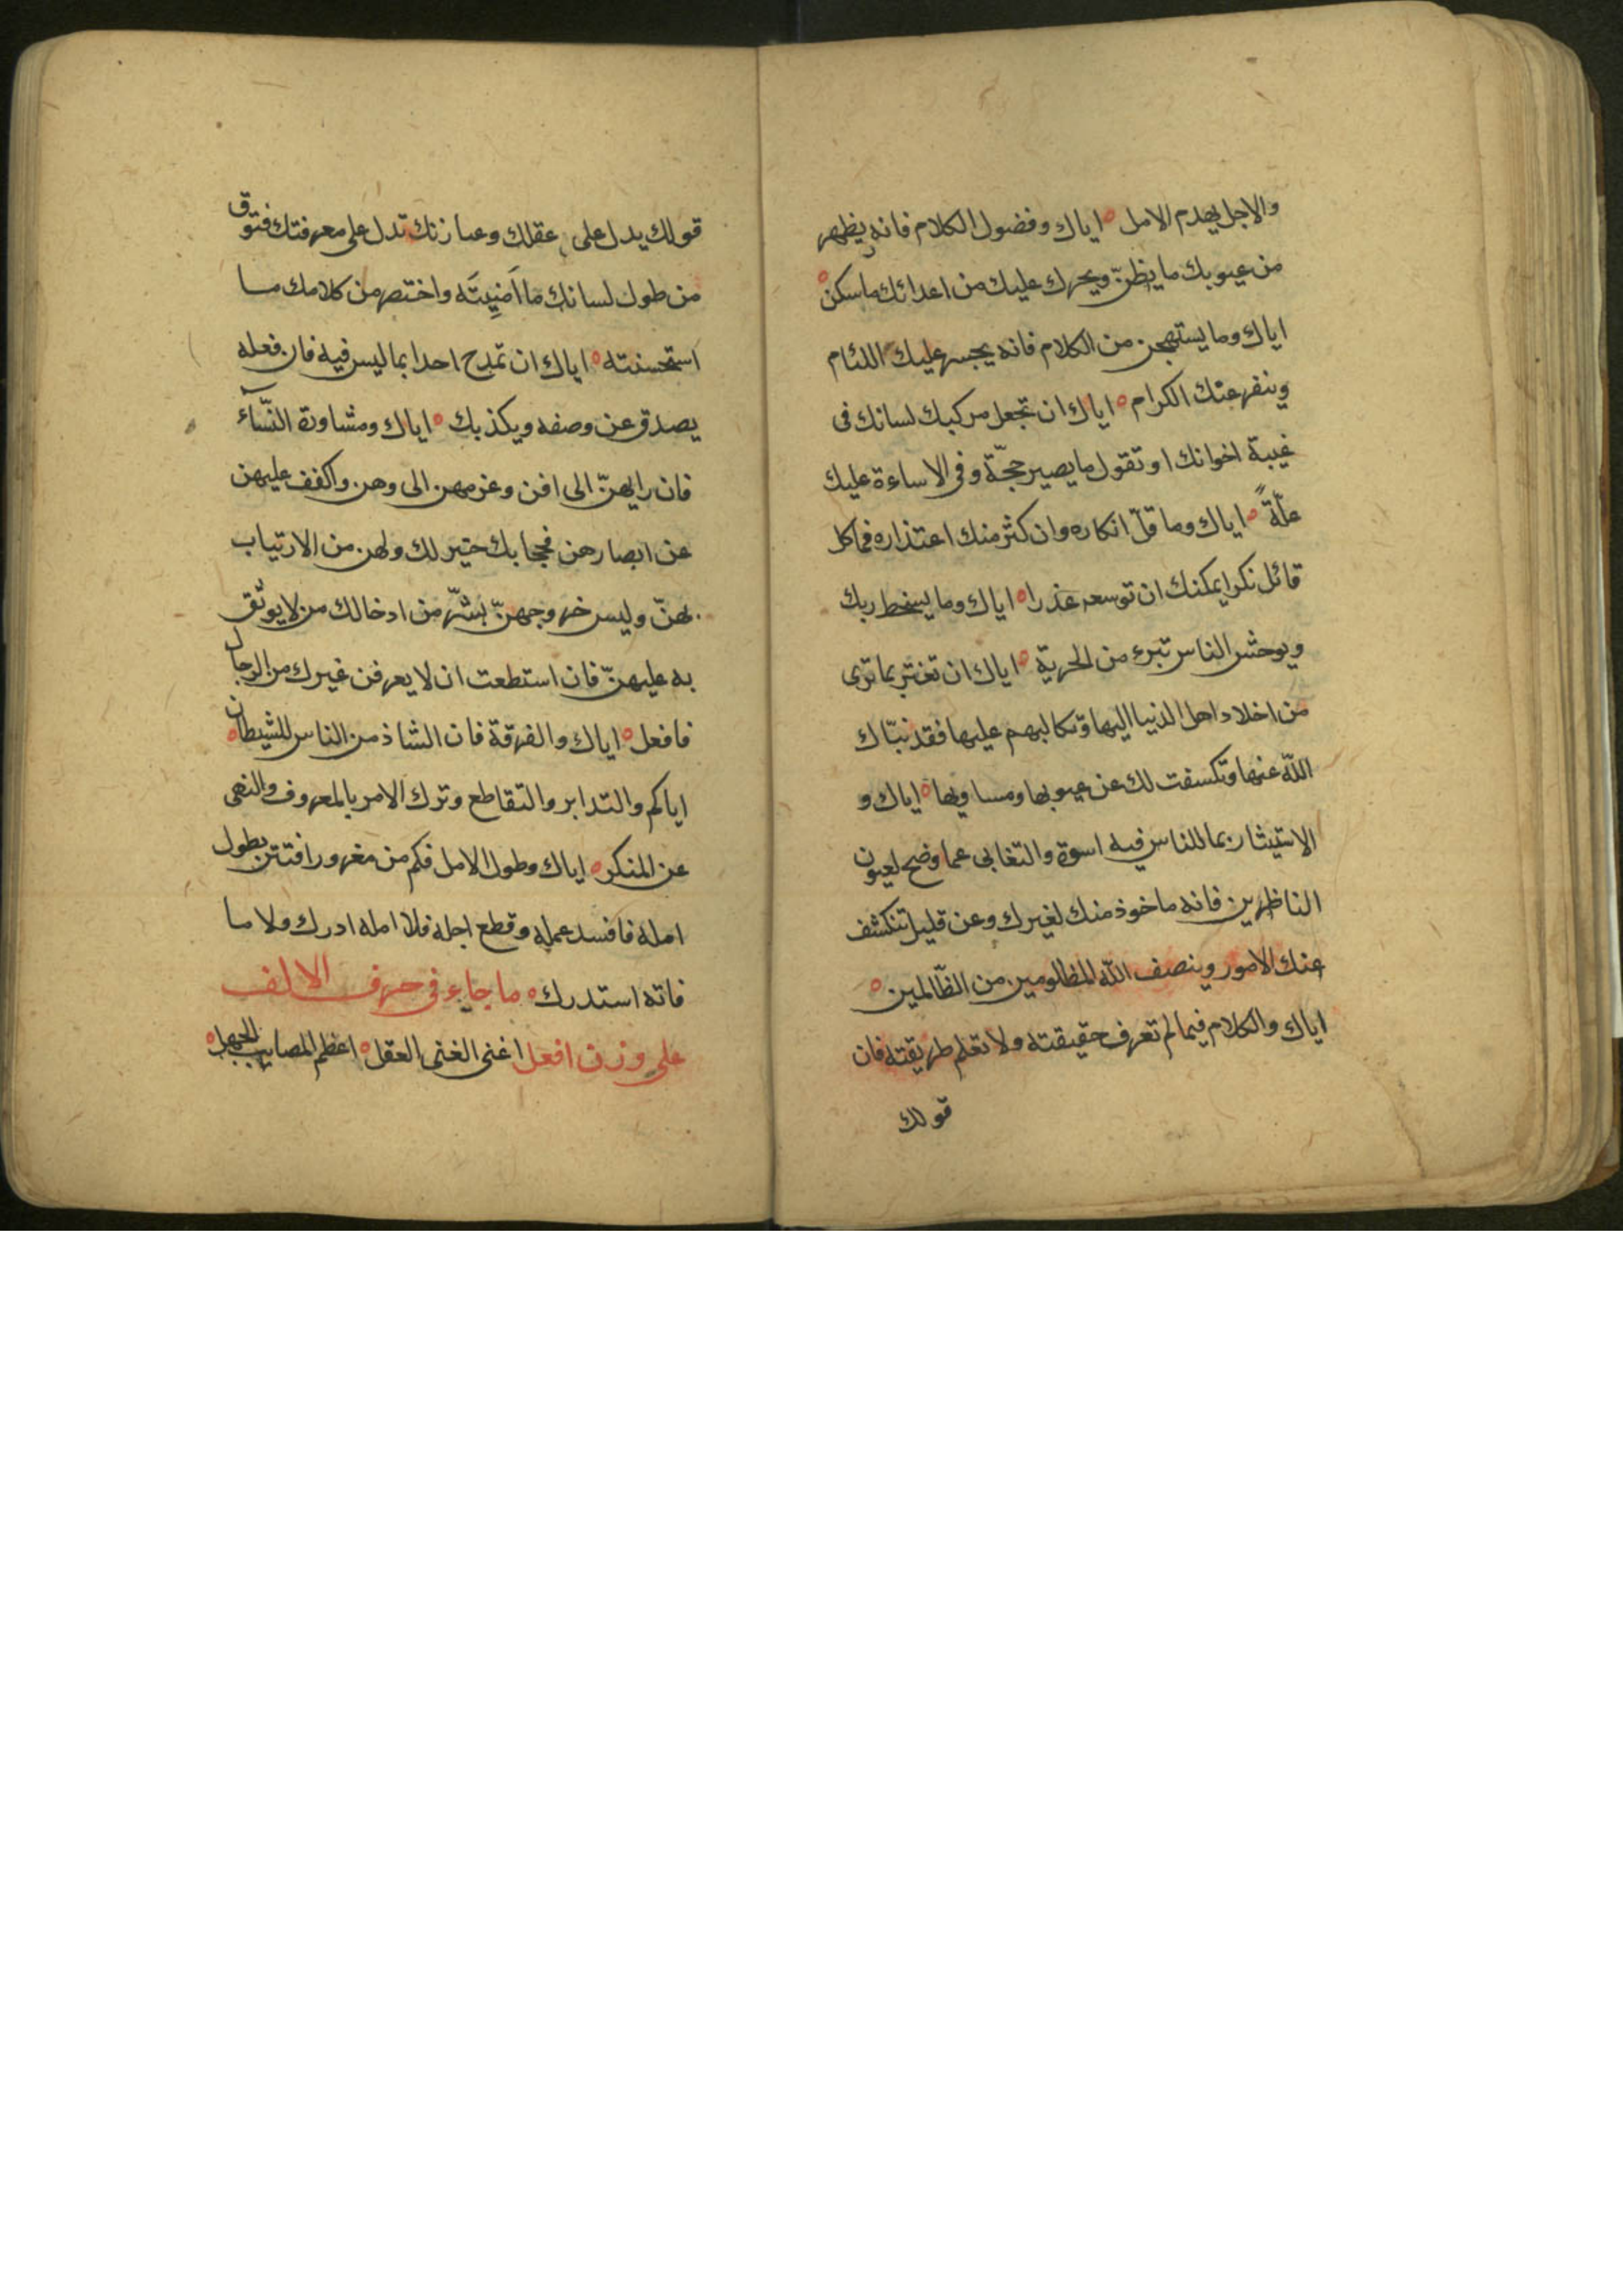 والاجل يهدم الامل ° اياك وفضول الكلام فانه يظهر
من عيوبك ما يظنّ ويحرك عليك من اعدائك ما سكن °
اياك وما يستهجن من الكلام فانه يحبس عليك اللئام
وينفر عنك الكرام ° اياك ان تجعل مركبك لسانك فى
غيبة اخوانك او تقول ما يصير حجّة وفى الاساءة عليك
علّةً ° اياك وما قلّ انكاره وان كثر منك اعتذاره فما كل
قائل نكرا يمكنك ان توسعه عذرا ° اياك وما يسخط ربك
ويوحش الناس تبرء من الحرية ° اياك ان تغتر بما ترى
من اخلاد اهل الدنيا اليها وتكالبهم عليها فقد نبّاك
اللّه عنها وتكسفت لك عن عيوبها ومساويها ° اياك و
الاستيثار بما للناس فيه اسوة والتغابى عما وضح لعيون
الناظرين فانه ماخوذ منك لغيرك وعن قليل تنكشف
عنك الامور وينصف اللّه المظلومين من الظّالمين °
اياك والكلام فيما لم تعرف حقيقته ولا تعلم طريقته فان
قولك
قولك يدل على عقلك وعبارتك تدل على معرفتك فتوق
من طول لسانك ما اَمَنِيتَه واختصر من كلامك ما
استحسنته ° اياك ان تمدح احدا بما ليس فيه فان فعله
يصدق عن وصفه ويكذبك ° اياك ومشاورة النّسآء
فان رايهنّ الى افن وعزمهن الى وهن واكفف عليهن
عن ابصارهن فحجابك خير لك ولهن من الارتياب
بهنّ وليس خروجهنّ بشرّ من ادخالك من لا يوثق
به عليهنّ فان استطعت ان لا يعرفن غيرك من الرجال
فافعل ° اياك والفرقة فان الشاذ من الناس للشيطان °
اياكم والتدابر والتقاطع وترك الامر بالمعروف والنهى
عن المنكر ° اياك وطول الامل فكم من مغرور افتتن بطول
امله فافسد عمله وقطع اجله فلا امله ادرك ولا ما
فاته استدرك ° ما جاء فى حرف الالف
على وزن افعل اغنى الغنى العقل ° اعظم المصايب الجهل °